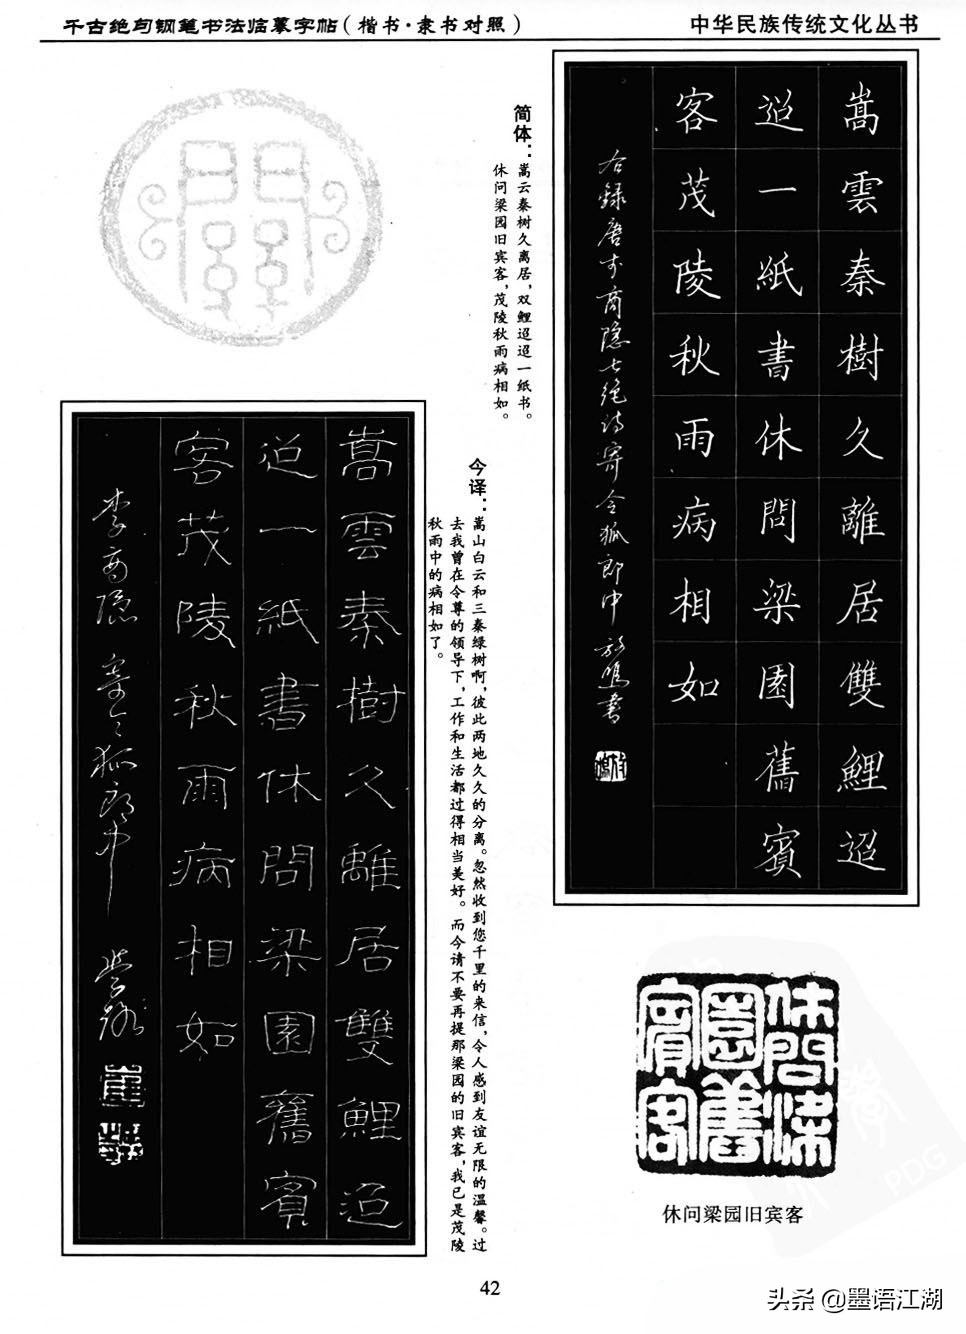 千古绝句钢笔书法临摹字帖（楷书·隶书对照）
中华民族传统文化丛书
嵩雲秦樹久離居雙鯉迢
迢一紙書休問梁園舊賓
客茂陵秋雨病相如
右録唐李商隐七绝诗寄令狐郎中
简体：
嵩云秦树久离居，双鲤迢迢一纸书。
休问梁园旧宾客，茂陵秋雨病相如。
今译：
嵩山白云和三秦绿树啊，彼此两地久久的分离。忽然收到您千里的来信，令人感到友谊无限的温馨。过
去我曾在令尊的领导下，工作和生活都过得相当美好。而今请不要再提那梁园的旧宾客，我已是茂陵
秋雨中的病相如了。
嵩雲秦樹久離居雙鯉迢
迢一紙書休問梁園舊賓
客茂陵秋雨病相如
李商隐寄令狐郎中
休問梁
園舊
賓客
休问梁园旧宾客
PDG
42
头条 @墨语江湖